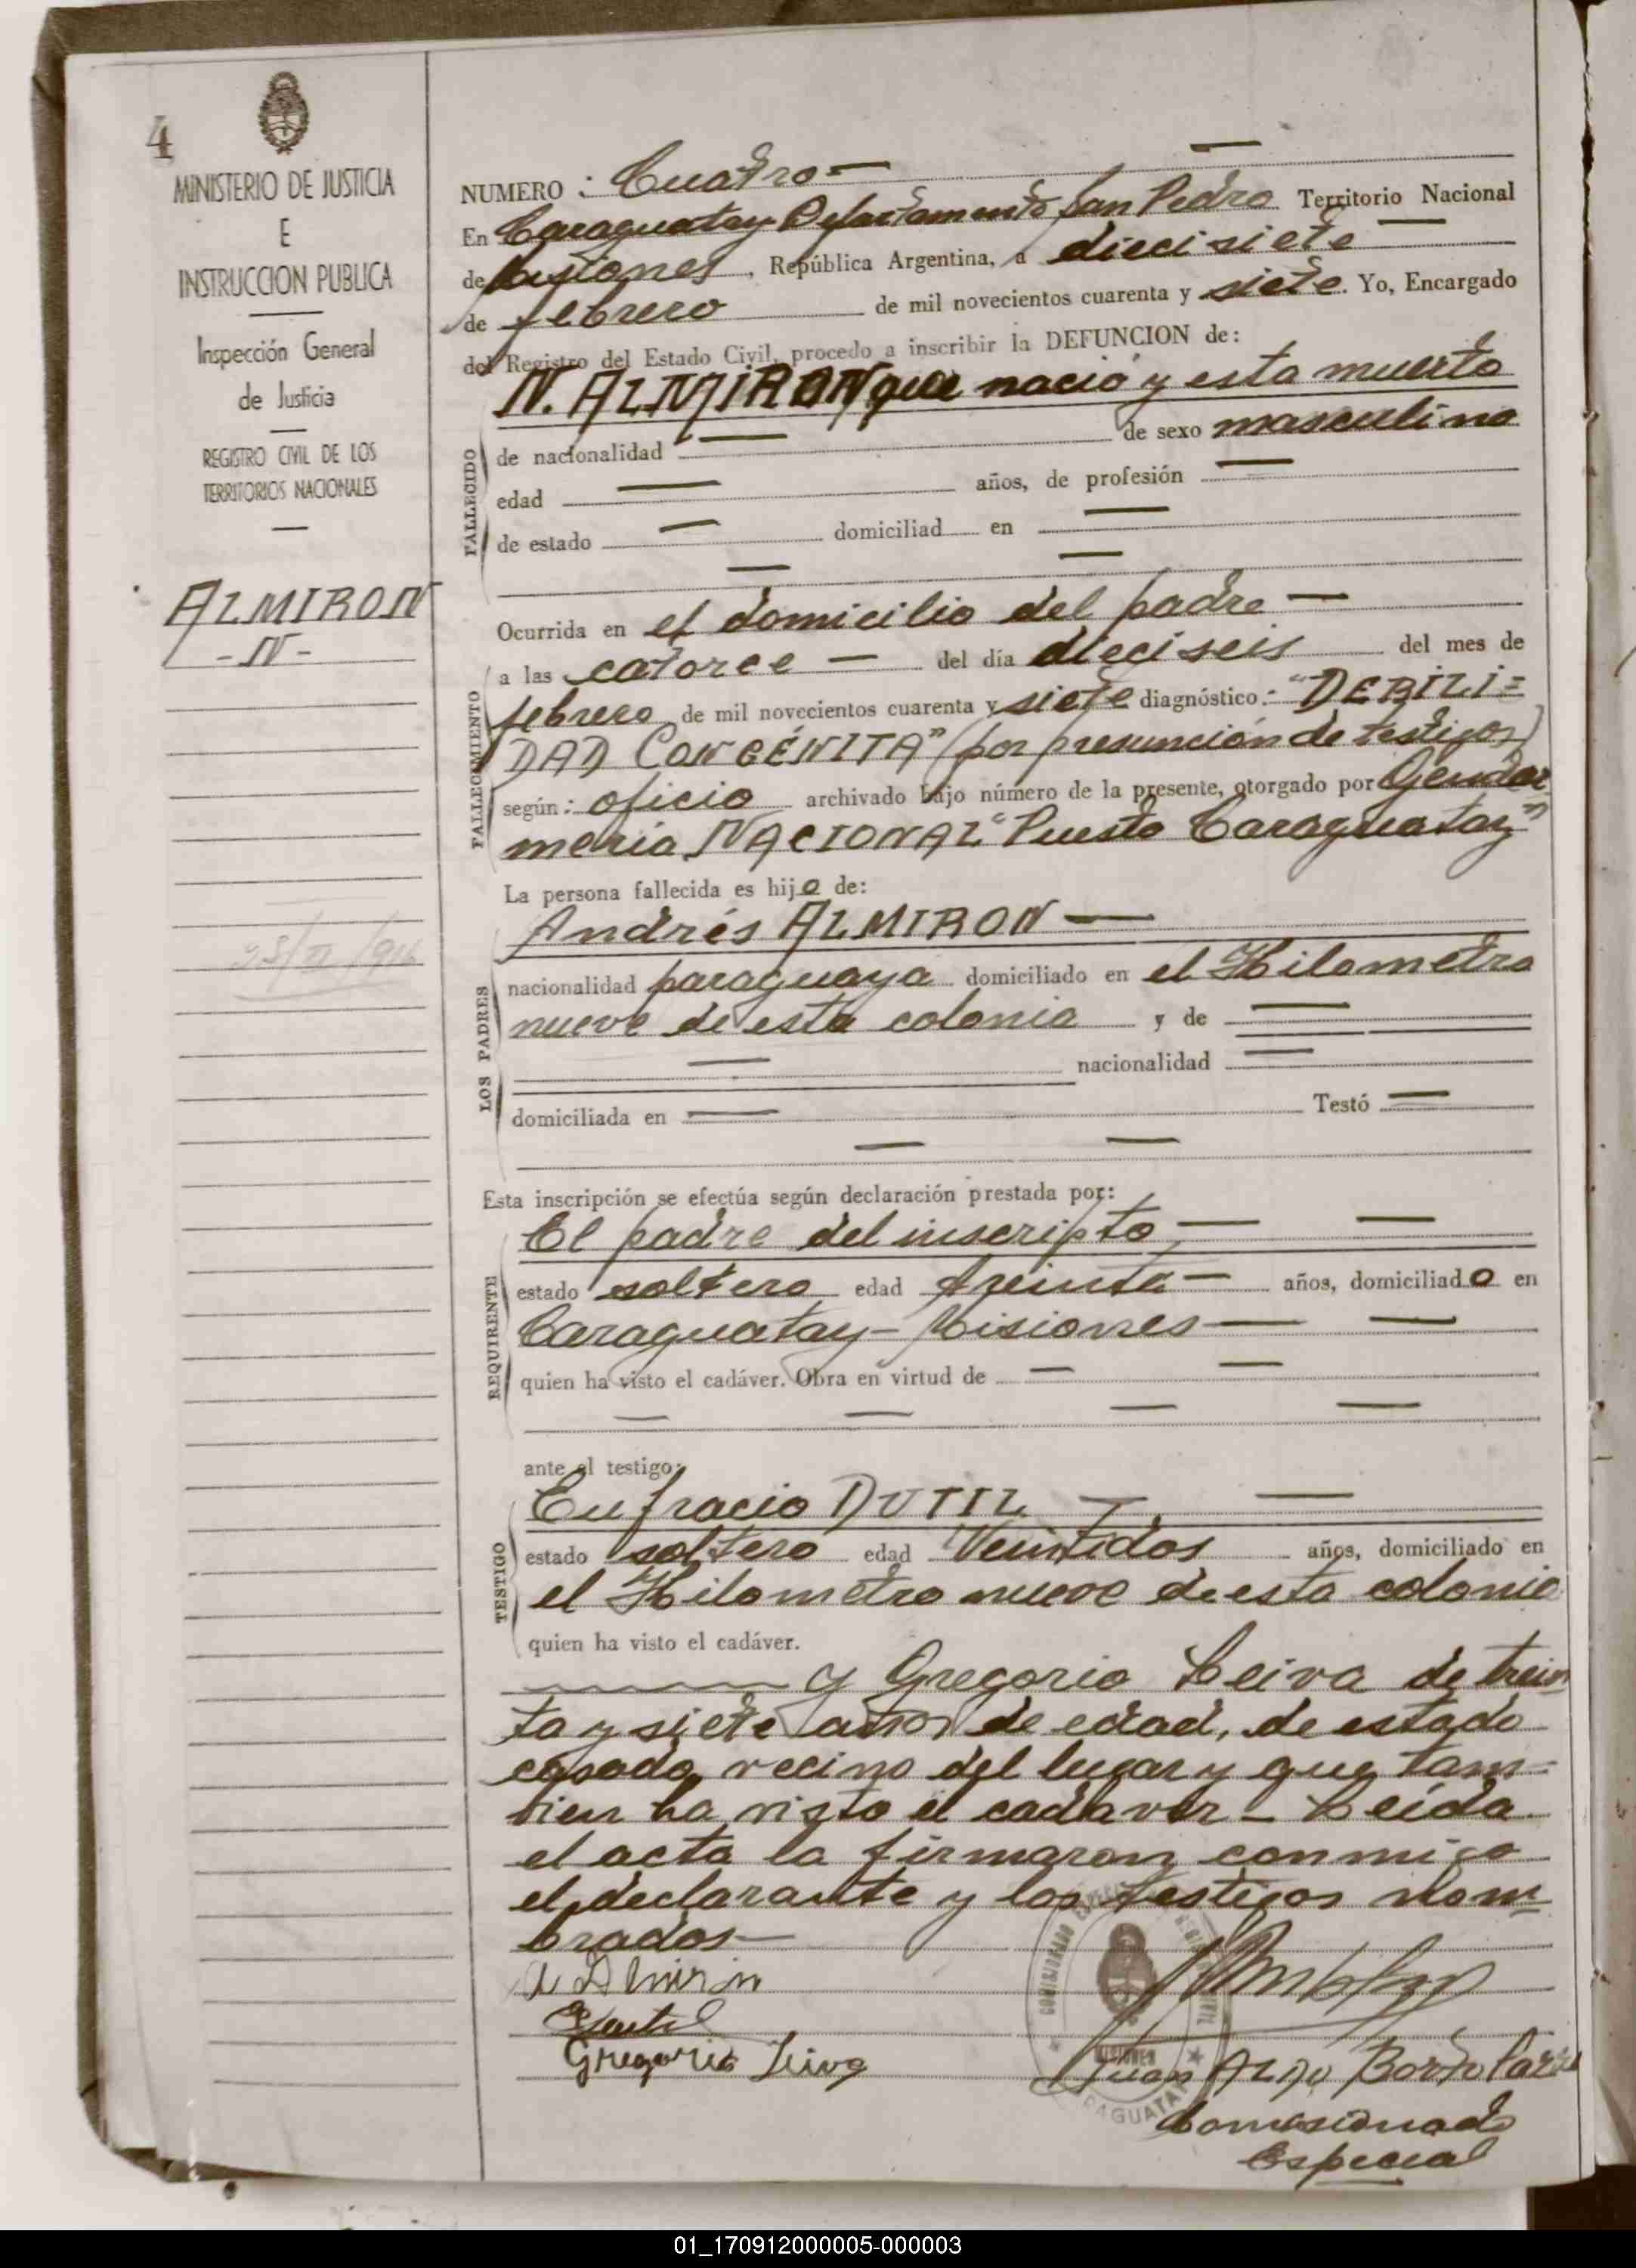 4
MINISTERIO DE JUSTICIA
E
INSTRUCCION PUBLICA
Inspección General
de Justicia
REGISTRO CIVIL DE LOS
TERRITORIOS NACIONALES
ALMIRON
- N -
NUMERO : Cuatro =
En Caraguatay Departamento San Pedro Territorio Nacional
de Misiones, República Argentina, a diecisiete
de febrero de mil novecientos cuarenta y siete. Yo, Encargado
del Registro del Estado Civil, procedo a inscribir la DEFUNCION de:
N. ALMIRON que nació y esta muerto
FALLECIDO
de nacionalidad — de sexo masculino
edad — años, de profesión —
de estado — domiciliad en —
Ocurrida en el domicilio del padre —
a las catorce — del día dieciseis del mes de
FALLECIMIENTO
febrero de mil novecientos cuarenta y siete diagnóstico: "DEBILI=
DAD CONGÉNITA" (por presunción de testigos)
según: oficio archivado bajo número de la presente, otorgado por Gendar
mería NACIONAL "Puesto Caraguatay"
La persona fallecida es hijo de:
Andrés ALMIRON —
LOS PADRES
nacionalidad paraguaya domiciliado en el Kilometro
nueve de esta colonia y de —
— nacionalidad —
domiciliada en — Testó —
Esta inscripción se efectúa según declaración prestada por:
El padre del inscripto —
REQUIRENTE
estado soltero edad treinta — años, domiciliado en
Caraguatay - Misiones —
quien ha visto el cadáver. Obra en virtud de —
ante el testigo:
Eufracio DUTIL —
TESTIGO
estado soltero edad Veintidos años, domiciliado en
el Kilometro nueve de esta colonia
quien ha visto el cadáver.
y Gregorio Leiva de trein
ta y siete años de edad, de estado
casado, vecino del lugar y que tam=
bien ha visto el cadaver - Leída
el acta la firmaron conmigo
el declarante y los testigos nom=
brados —
A Almirón
Gregorio Leiva
COMISIONADO ESPECIAL
MISIONES
CARAGUATAY
Comisionado
Especial
01_170912000005-000003